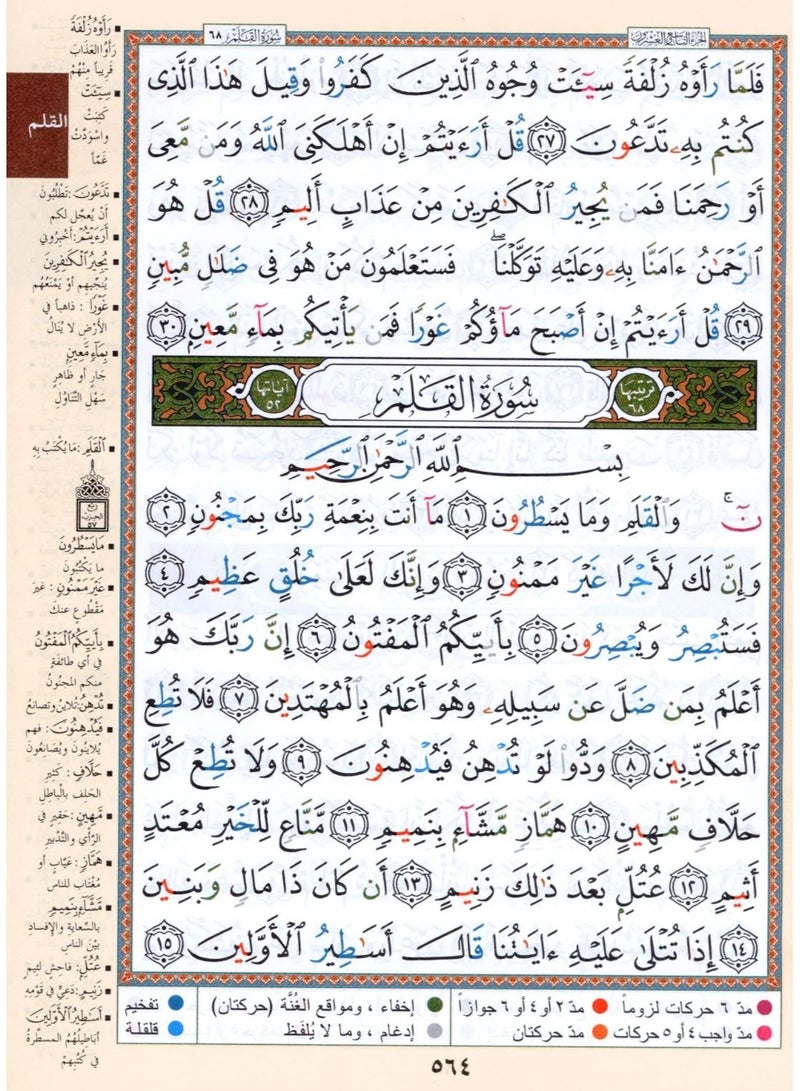 الجزء التاسع والعشرون
سُورَةُ القَلَم ٦٨
فَلَمَّا رَأَوْهُ زُلْفَةً سِيٓـَٔتْ وُجُوهُ ٱلَّذِينَ كَفَرُوا۟ وَقِيلَ هَٰذَا ٱلَّذِى
كُنتُم بِهِۦ تَدَّعُونَ ٢٧ قُلْ أَرَءَيْتُمْ إِنْ أَهْلَكَنِىَ ٱللَّهُ وَمَن مَّعِىَ
أَوْ رَحِمَنَا فَمَن يُجِيرُ ٱلْكَٰفِرِينَ مِنْ عَذَابٍ أَلِيمٍ ٢٨ قُلْ هُوَ
ٱلرَّحْمَٰنُ ءَامَنَّا بِهِۦ وَعَلَيْهِ تَوَكَّلْنَا ۖ فَسَتَعْلَمُونَ مَنْ هُوَ فِى ضَلَٰلٍ مُّبِينٍ
٢٩ قُلْ أَرَءَيْتُمْ إِنْ أَصْبَحَ مَآؤُكُمْ غَوْرًا فَمَن يَأْتِيكُم بِمَآءٍ مَّعِينٍ ٣٠
ترتيبها ٦٨ سُورَةُ القَلَم آياتها ٥٢
بِسْمِ ٱللَّهِ ٱلرَّحْمَٰنِ ٱلرَّحِيمِ
نٓ ۚ وَٱلْقَلَمِ وَمَا يَسْطُرُونَ ١ مَآ أَنتَ بِنِعْمَةِ رَبِّكَ بِمَجْنُونٍ ٢
وَإِنَّ لَكَ لَأَجْرًا غَيْرَ مَمْنُونٍ ٣ وَإِنَّكَ لَعَلَىٰ خُلُقٍ عَظِيمٍ ٤
فَسَتُبْصِرُ وَيُبْصِرُونَ ٥ بِأَييِّكُمُ ٱلْمَفْتُونُ ٦ إِنَّ رَبَّكَ هُوَ
أَعْلَمُ بِمَن ضَلَّ عَن سَبِيلِهِۦ وَهُوَ أَعْلَمُ بِٱلْمُهْتَدِينَ ٧ فَلَا تُطِعِ
ٱلْمُكَذِّبِينَ ٨ وَدُّوا۟ لَوْ تُدْهِنُ فَيُدْهِنُونَ ٩ وَلَا تُطِعْ كُلَّ
حَلَّافٍ مَّهِينٍ ١٠ هَمَّازٍ مَّشَّآءٍۭ بِنَمِيمٍ ١١ مَّنَّاعٍ لِّلْخَيْرِ مُعْتَدٍ
أَثِيمٍ ١٢ عُتُلٍّۭ بَعْدَ ذَٰلِكَ زَنِيمٍ ١٣ أَن كَانَ ذَا مَالٍ وَبَنِينَ
١٤ إِذَا تُتْلَىٰ عَلَيْهِ ءَايَٰتُنَا قَالَ أَسَٰطِيرُ ٱلْأَوَّلِينَ ١٥
رَأَوْهُ زُلْفَةً
رَأَوُا العَذَابَ
قَرِيباً مِنْهُمْ
سِيٓـَٔتْ
كَئِبَتْ
وَاسْوَدَّتْ
غَمّاً
القلم
تَدَّعُونَ : تَطْلُبُونَ
أنْ يُعجَّل لكم
أَرَءَيْتُمْ : أَخْبِرُونِي
يُجِيرُ الْكَٰفِرِينَ
يُنْجِيهم أَوْ يَمْنَعُهُم
غَوْرًا : ذاهباً في
الأَرْضِ لا يُنَالُ
بِمَآءٍ مَّعِينٍ
جَارٍ أو ظاهِرٍ
سَهْلِ التَّنَاوُلِ
الْقَلَمِ : مَا يُكْتَبُ بِهِ
ربع
الحزب
٥٧
مَا يَسْطُرُونَ
ما يَكْتُبُونَ
غَيْرَ مَمْنُونٍ : غيرَ
مَقْطُوعٍ عنك
بِأَييِّكُمُ الْمَفْتُونُ
في أي طائفةٍ
منكم المجنُونُ
تُدْهِنُ : تُلاينُ وتصانعُ
فَيُدْهِنُونَ : فهم
يُلاينُونَ ويُصَانِعُونَ
حَلَّافٍ : كثيرِ
الحَلف بالباطِلِ
مَّهِينٍ : حَقيرٍ في
الرَّأي والتَّدْبيرِ
هَمَّازٍ : عَيَّابٍ أو
مُغْتَابٍ للناس
مَّشَّآءٍۭ بِنَمِيمٍ
بالسِّعاية والإفسادِ
بيْنَ الناس
عُتُلٍّ : فاحشٍ لئيمٍ
زَنِيمٍ : دَعِيٍّ في قَوْمِهِ
أَسَٰطِيرُ الْأَوَّلِينَ
أباطيلُهم المسطَّرةُ
في كُتُبِهِمْ
مدّ ٦ حركات لزوماً
مدّ ٢ أو ٤ أو ٦ جوازاً
إخفاء ، ومواقع الغُنَّة (حركتان)
تفخيم
مدّ واجب ٤ أو ٥ حركات
مدّ حركتان
إدغام ، وما لا يُلفَظ
قلقلة
٥٦٤